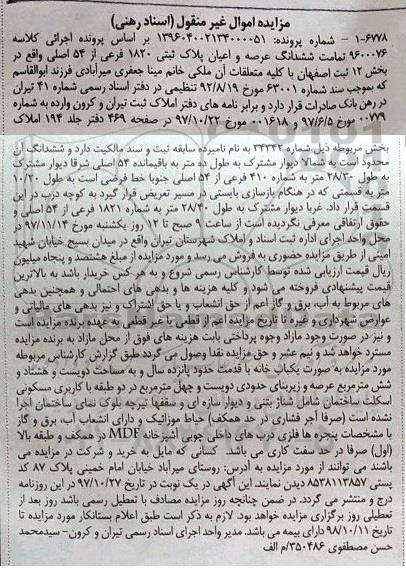 مزایده اموال غیر منقول (اسناد رهنی)
۱-۶۷۷۸ - شماره پرونده: ۱۳۹۶۰۴۰۰۲۱۳۴۰۰۰۰۵۱ بر اساس پرونده اجرائی کلاسه
۹۶۰۰۰۷۶ تمامت ششدانگ عرصه و اعیان پلاک ثبتی ۱۸۲۰ فرعی از ۵۴ اصلی واقع در
بخش ۱۲ ثبت اصفهان با کلیه متعلقات آن ملکی خانم مینا جعفری میرآبادی فرزند ابوالقاسم
که بموجب سند شماره ۶۳۰۰۱ مورخ ۹۲/۸/۱۹ تنظیمی در دفتر اسناد رسمی شماره ۴۱ تیران
در رهن بانک صادرات قرار دارد و برابر نامه های دفتر املاک ثبت تیران و کرون وارده به شماره
۰۰۷۷۹ مورخ ۹۷/۶/۵ و ۰۰۱۶۱۸ مورخ ۹۷/۱۰/۲۲ در صفحه ۴۶۹ دفتر جلد ۱۹۴ املاک
بخش مربوطه ذیل شماره ۳۴۳۴۲ به نام نامبرده سابقه ثبت و سند مالکیت دارد و ششدانگ آن
محدود است به شمالا دیوار مشترک به طول ده متر به باقیمانده ۵۴ اصلی شرقا دیوار مشترک
به طول ۲۸/۳۰ متر به شماره ۴۱۰ فرعی از ۵۴ اصلی جنوبا خط فرضی است به طول ۱۰/۲۰
متر به قسمتی که در هنگام بازسازی بایستی در مسیر تعریض قرار گیرد به کوچه درب در این
قسمت قرار داد. غربا دیوار مشترک به طول ۲۸/۴۰ متر به شماره ۱۸۲۱ فرعی از ۵۴ اصلی و
حقوق ارتفاقی معرفی نگردیده است از ساعت ۹ صبح تا ۱۲ روز یکشنبه مورخ ۹۷/۱۱/۱۴ در
محل واحد اجرای اداره ثبت اسناد و املاک شهرستان تیران واقع در میدان بسیج خیابان شهید
امینی از طریق مزایده حضوری به فروش می رسد و مورد مزایده از مبلغ هشتصد و پنجاه میلیون
ریال قیمت ارزیابی شده توسط کارشناس رسمی شروع و به هر کس خریدار باشد به بالاترین
قیمت پیشنهادی فروخته می شود و کلیه هزینه ها و بدهی های احتمالی و همچنین بدهی
های مربوط به آب، برق و گاز اعم از حق انشعاب و یا حق اشتراک و نیز بدهی های مالیاتی و
عوارض شهرداری و غیره تا تاریخ مزایده اعم از قطعی یا غیر قطعی به عهده برنده مزایده است
و نیز در صورت وجود مازاد وجوه پرداختی بابت هزینه های فوق از محل مازاد به برنده مزایده
مسترد خواهد شد و نیم عشر و حق مزایده نقدا وصول می گردد طبق گزارش کارشناس مربوطه
مورد مزایده به صورت یکباب خانه با قدمت حدود پانزده سال و به مساحت دویست و هشتاد و
شش مترمربع عرصه و زیربنای حدودی دویست و چهل مترمربع در دو طبقه با کاربری مسکونی
اسکلت ساختمان شامل شناژ بتنی و دیوار سازه ای و سقفها تیرچه بلوک نمای ساختمان اجرا
نشده است (صرفا آجر فشاری در حد همکف) حیاط موزائیک و دارای انشعاب آب، برق و گاز
با مشخصات پنجره ها فلزی درب های داخلی چوبی آشپزخانه MDF در همکف و طبقه بالا
(اول) صرفا در حد سفت کاری می باشد. کسانی که مایل به خرید و شرکت در مزایده می
باشند می توانند از مورد مزایده به آدرس: روستای میرآباد خیابان امام خمینی پلاک ۸۷ کد
پستی ۸۵۳۸۱۱۳۸۵۷ دیدن نمایند. این آگهی در یک نوبت در تاریخ ۹۷/۱۰/۲۷ در این روزنامه
درج و منتشر می گردد. در ضمن چنانچه روز مزایده مصادف با تعطیل رسمی باشد روز بعد از
تعطیلی روز برگزاری مزایده خواهد بود. لازم به ذکر است طبق اعلام بستانکار مورد مزایده تا
تاریخ ۹۸/۱۰/۱۱ دارای بیمه می باشد. مدیر واحد اجرای اسناد رسمی تیران و کرون- سیدمحمد
حسن مصطفوی ۳۵۰۴۸۶/م الف